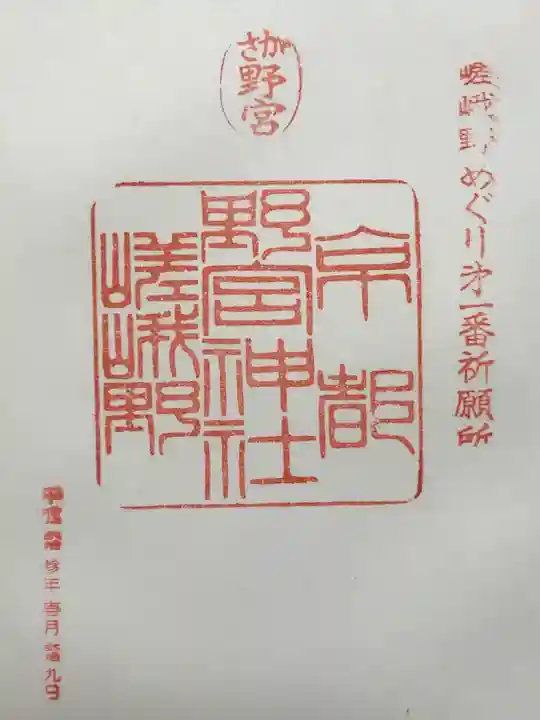 嵯峨野めぐり第一番祈願所
さが
野宮
京都
野宮神社
嵯峨野
年
月
九日